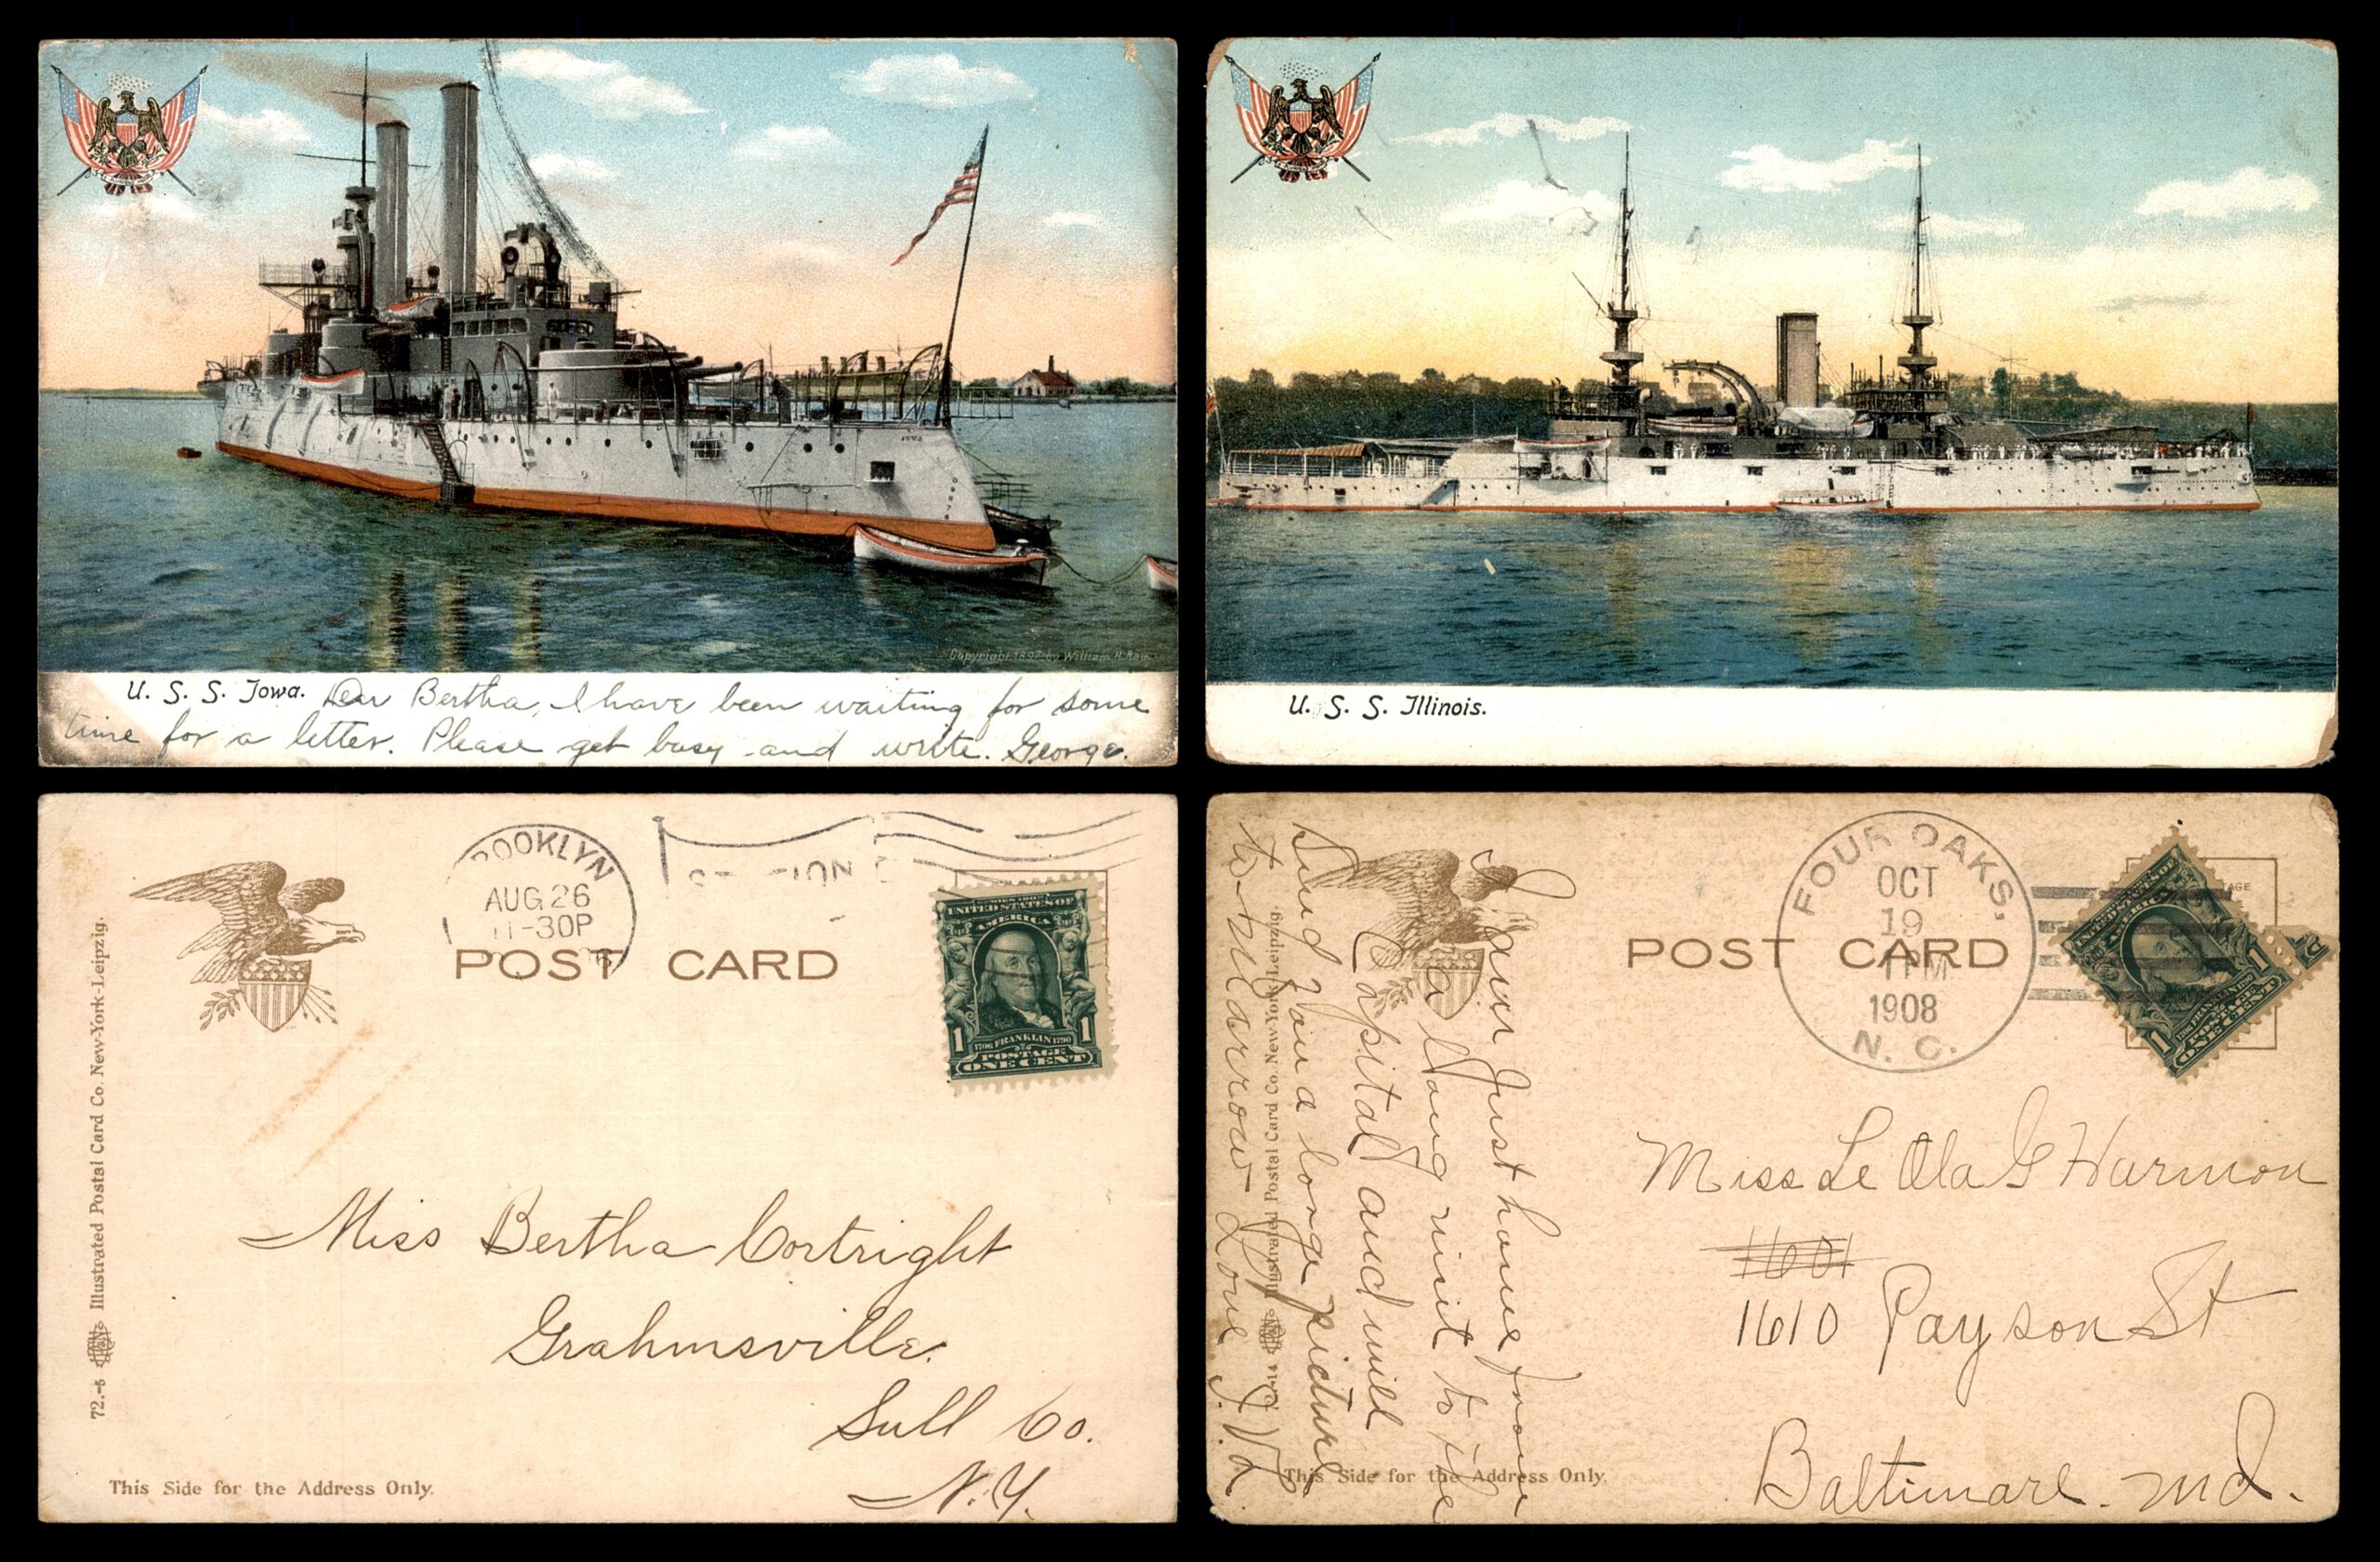 U. S. S. Iowa. Dear Bertha, I have been waiting for some
time for a letter. Please get busy and write. George.
Copyright 1897 by William H. Rau
IOWA
U. S. S. Illinois.
BROOKLYN
AUG 26
11-30P
STATION
POST CARD
UNITED STATES OF
AMERICA
1 1
1706 FRANKLIN 1790
POSTAGE
ONE CENT
72.-5 Illustrated Postal Card Co. New-York-Leipzig.
Miss Bertha Cortright
Grahmsville.
Sull Co.
N.Y.
This Side for the Address Only.
I Just home from
a long visit to the
Capital and will
Send you a longe picture
to-Morrow- Love
Illustrated Postal Card Co. New-York-Leipzig.
POST CARD
FOUR OAKS,
OCT
19
1908
N. C.
UNITED STATES OF
AMERICA
1 1
1706 FRANKLIN 1790
POSTAGE
ONE CENT
Miss Le Ola G Harmon
1601
1610 Payson St
Baltimare. Md.
This Side for the Address Only.